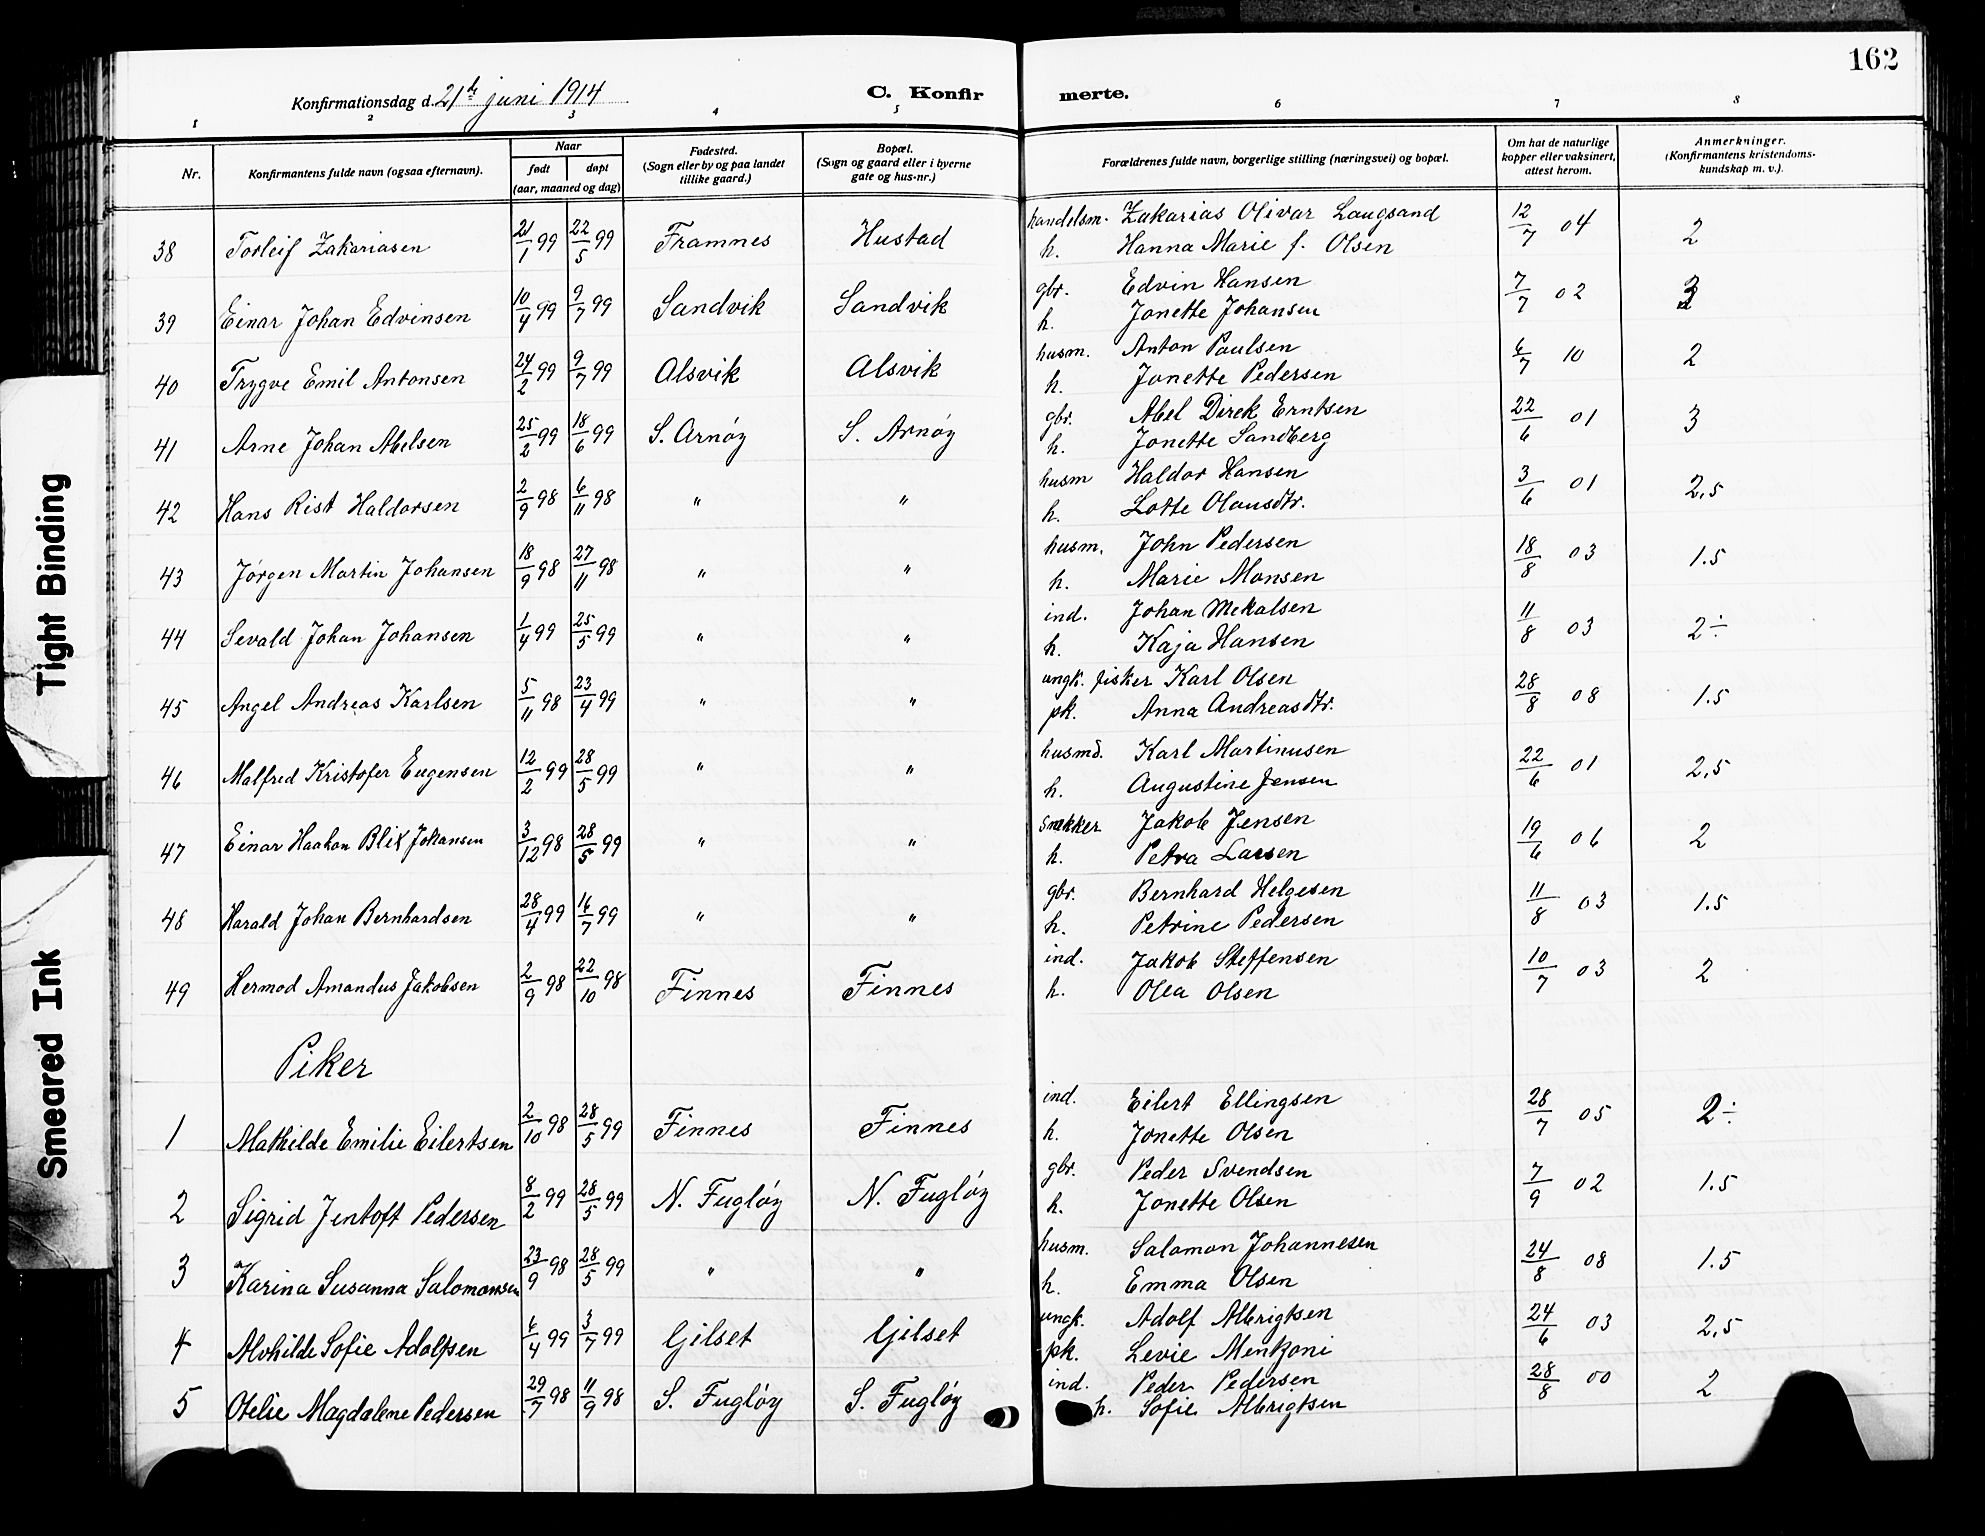 162
Konfirmationsdag d. 21de juni 1914
C. Konfir
merte.
1 2 3 4 5 6 7 8
Nr.
Konfirmantens fulde navn (ogsaa efternavn).
Naar
født døpt
(aar, maaned og dag)
Fødested.
(Sogn eller by og paa landet
tillike gaard.)
Bopæl.
(Sogn og gaard eller i byerne
gate og hus-nr.)
Forældrenes fulde navn, borgerlige stilling (næringsvei) og bopæl.
Om hat de naturlige
kopper eller vaksinert,
attest herom.
Anmerkninger.
(Konfirmantens kristendoms-
kundskap m. v.).
38 Torleif Zakariasen 21/1 99 22/5 99 Framnes Hustad handelsm. Zakarias Olivar Langsand 12/7 04 2
h. Hanna Marie f. Olsen
39 Einar Johan Edvinsen 10/4 99 9/7 99 Sandvik Sandvik gbr. Edvin Hansen 7/7 02 3
h. Jonette Johansen
40 Trygve Emil Antonsen 24/2 99 9/7 99 Alsvik Alsvik husm. Anton Paulsen 6/7 10 2
h. Jonette Pedersen
41 Arne Johan Abelsen 25/2 99 18/6 99 S. Arnøy S. Arnøy gbr. Abel Direk Erntsen 22/6 01 3
h. Jonette Sandberg
42 Hans Rist Haldorsen 2/9 98 6/11 98 " " husm Haldor Hansen 3/6 01 2,5
h. Lotte Olausdtr.
43 Jørgen Martin Johansen 18/9 98 27/11 98 " " husm. John Pedersen 18/8 03 1.5
h. Marie Monsen
44 Sevald Johan Johansen 1/4 99 25/5 99 " " ind. Johan Mekalsen 11/8 03 2÷
h. Kaja Hansen
45 Angel Andreas Karlsen 5/11 98 23/4 99 " " ungk. fisker Karl Olsen 28/8 08 1.5
pk. Anna Andreasdtr.
46 Malfred Kristofer Eugensen 12/2 99 28/5 99 " " husmd. Karl Martinusen 22/6 01 2,5
h. Augustine Jensen
47 Einar Haakon Blix Johansen 3/12 98 28/5 99 " " snekker Jakob Jensen 19/6 06 2
h. Petra Larsen
48 Harald Johan Bernhardsen 28/4 99 16/7 99 " " gbr. Bernhard Helgesen 11/8 03 1.5
h. Petrine Pedersen
49 Hermod Amandus Jakobsen 2/9 98 22/10 98 Finnes Finnes ind. Jakob Steffensen 10/7 03 2
h. Olea Olsen
Piker
1 Mathilde Emilie Eilertsen 2/10 98 28/5 99 Finnes Finnes ind. Eilert Ellingsen 28/7 05 2÷
h. Jonette Olsen
2 Sigrid Jentoft Pedersen 8/2 99 28/5 99 N. Fugløy N. Fugløy gbr. Peder Svendsen 7/9 02 1.5
h. Jonette Olsen
3 Karina Susanna Salomonsen 23/9 98 28/5 99 " " husm. Salomon Johannesen 24/8 08 1.5
h. Emma Olsen
4 Alvhilde Sofie Adolfsen 6/4 99 3/7 99 Gilset Gilset ungk. Adolf Albrigtsen 24/6 03 2,5
pk. Levie Mentzoni
5 Otelie Magdalene Pedersen 29/7 98 11/9 98 S. Fugløy S. Fugløy ind. Peder Pedersen 28/8 00 2
h. Sofie Albrigtsen
Tight Binding
Smeared Ink